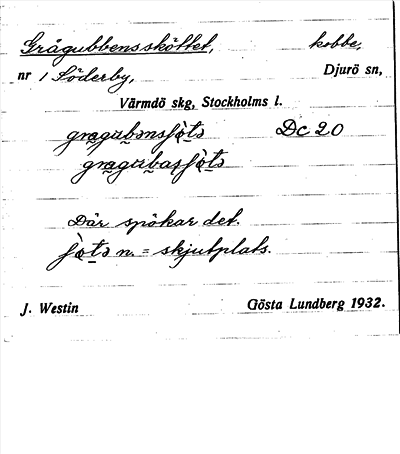 Grågubbensskottet, kobbe,
nr 1 Söderby, Djurö sn,
Värmdö skg, Stockholms l.
Dc 20
Där spökar det.
n. = skjutplats.
J. Westin Gösta Lundberg 1932.